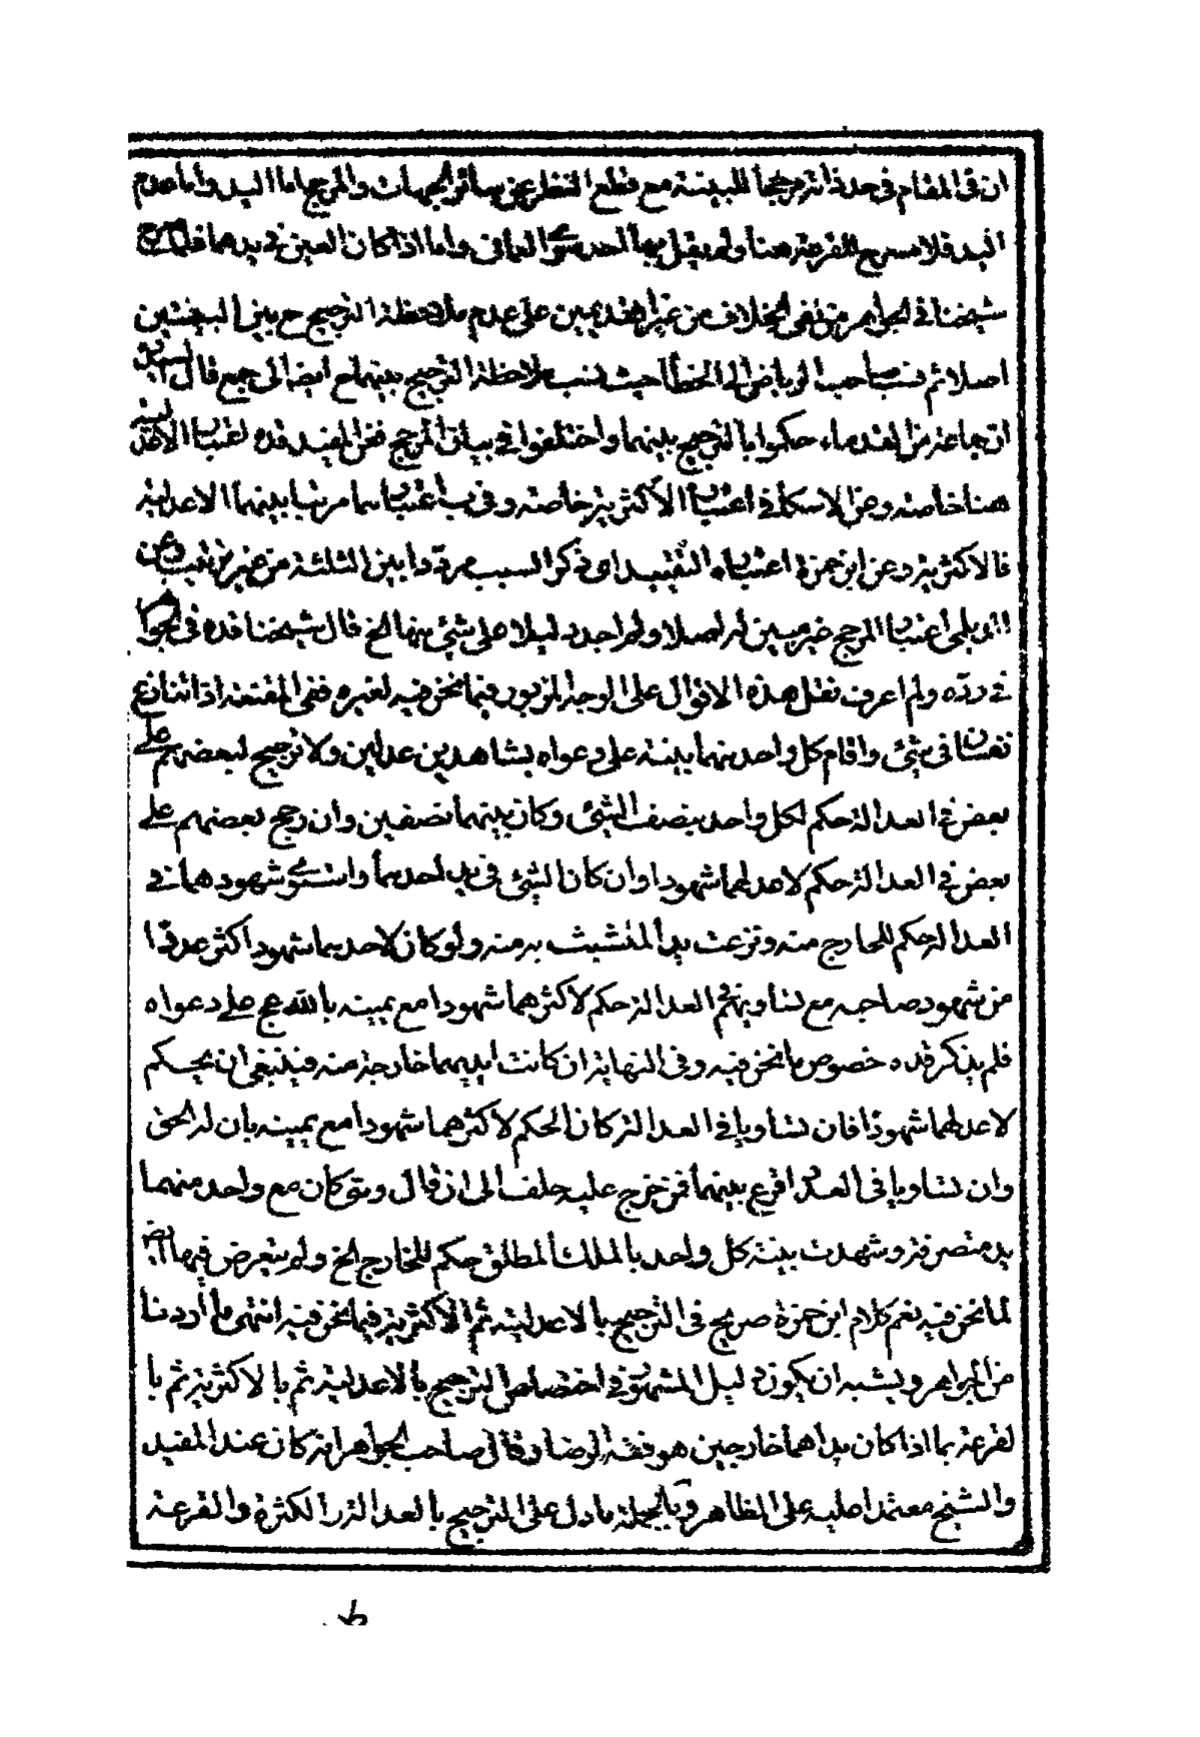 ان في المقام في حد ذاته مرجحا للبينة مع قطع النظر عن سائر الجهات والمرجح اما اليد واما عدم
اليد فلا مسرح للقرعة هنا ولم يقل بها احد سوى العماني واما اذا كان العين في يدهما
شيخنا في الجواهر من نفى الخلاف من غير القديمين على عدم ملاحظة الترجيح ح بين البينتين
اصلا ثم نسب صاحب الرياض الى الخطأ حيث نسب ملاحظة الترجيح بينهما ايضا الى جمع قال
ان جماعة من القدماء حكموا بالترجيح بينهما واختلفوا في بيان المرجح فعن المفيد قده اعتبار الاعدلية
هنا خاصة وعن الاسكافي اعتبار الاكثرية خاصة وفي اعتبارهما مرتبا بينهما الاعدلية
فالاكثرية وعن ابن حمزة اعتبار التقييد او ذكر السبب مرددا بين الثلثة من غير ترتيب وعن
الديلمي اعتبار المرجح غير مبين له اصلا ولم اجد دليلا على شئ منها الخ قال شيخنا قده في الجواهر
في رده ولم اعرف نقل هذه الاقوال على الوجه المزبور فيما نحن فيه لغيره ففي المقنعة اذا تنازع
نفسان في شئ واقام كل واحد منهما بينة على دعواه بشاهدين عدلين ولا ترجيح لبعضهم على
بعض في العدالة حكم لكل واحد بنصف الشئ وكان بينهما نصفين وان رجح بعضهم على
بعض في العدالة حكم لاعدلهما شهودا وان كان الشئ في يد احدهما واستوى شهودهما في
العدالة حكم للخارج منه ونزعت يد المتشبث به منه ولو كان لاحدهما شهود اكثر عددا
من شهود صاحبه مع تساويهم في العدالة حكم لاكثرهما شهودا مع يمينه بالله عج على دعواه
فلم يذكر قده خصوص ما نحن فيه وفي النهاية ان كانت ايديهما خارجة منه فينبغي ان يحكم
لاعدلهما شهودا فان تساويا في العدالة كان الحكم لاكثرهما شهودا مع يمينه بان له الحق
وان تساويا في العدد اقرع بينهما فمن خرج عليه حلف الى ان قال ومتى كان مع واحد منهما
يد متصرفة وشهدت بينة كل واحد بالملك المطلق حكم للخارج الخ ولم يتعرض فيها ايضا
لما نحن فيه نعم كلام ابن حمزة صريح في الترجيح بالاعدلية ثم الاكثرية فيما نحن فيه انتهى ما اردنا
من الجواهر ويشبه ان يكون دليل المشهور في اختصاص الترجيح بالاعدلية ثم بالاكثرية ثم با
لقرعة بما اذا كان يداهما خارجين هو فقه الرضا وقال صاحب الجواهر انه كان عند المفيد
والشيخ معتمدا عليه على الظاهر وبالجملة ما دل على الترجيح بالعدالة والكثرة والقرعة